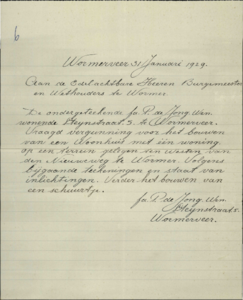 6
Wormerveer 31 Januari 1929.
Aan de Edelachtbare Heeren Burgemeester
en Wethouders te Wormer.
De ondergeteekende Ja P. de Jong Wzn
wonende Steynstraat 5. te Wormerveer.
Vraagd vergunning voor het bouwen
van een Woonhuis met één woning
op een terrein gelegen ten Westen van
den Nieuweweg te Wormer. Volgens
bijgaande teekeningen en staat van
inlichtingen. Verder het bouwen van
een schuurtje.
Ja P. de Jong. Wzn.
Steynstraat 5.
Wormerveer.